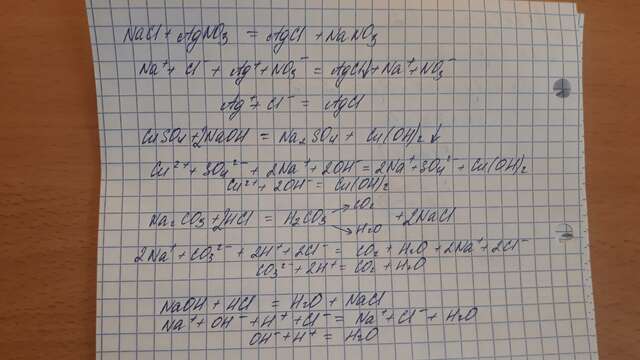 NaCl + AgNO₃ = AgCl + NaNO₃
Na⁺ + Cl⁻ + Ag⁺ + NO₃⁻ = AgCl↓ + Na⁺ + NO₃⁻
Ag⁺ + Cl⁻ = AgCl
CuSO₄ + 2NaOH = Na₂SO₄ + Cu(OH)₂↓
Cu²⁺ + SO₄²⁻ + 2Na⁺ + 2OH⁻ = 2Na⁺ + SO₄²⁻ + Cu(OH)₂
Cu²⁺ + 2OH⁻ = Cu(OH)₂
Na₂CO₃ + 2HCl = H₂CO₃ → CO₂ → H₂O + 2NaCl
2Na⁺ + CO₃²⁻ + 2H⁺ + 2Cl⁻ = CO₂ + H₂O + 2Na⁺ + 2Cl⁻
CO₃²⁻ + 2H⁺ = CO₂ + H₂O
NaOH + HCl = H₂O + NaCl
Na⁺ + OH⁻ + H⁺ + Cl⁻ = Na⁺ + Cl⁻ + H₂O
OH⁻ + H⁺ = H₂O